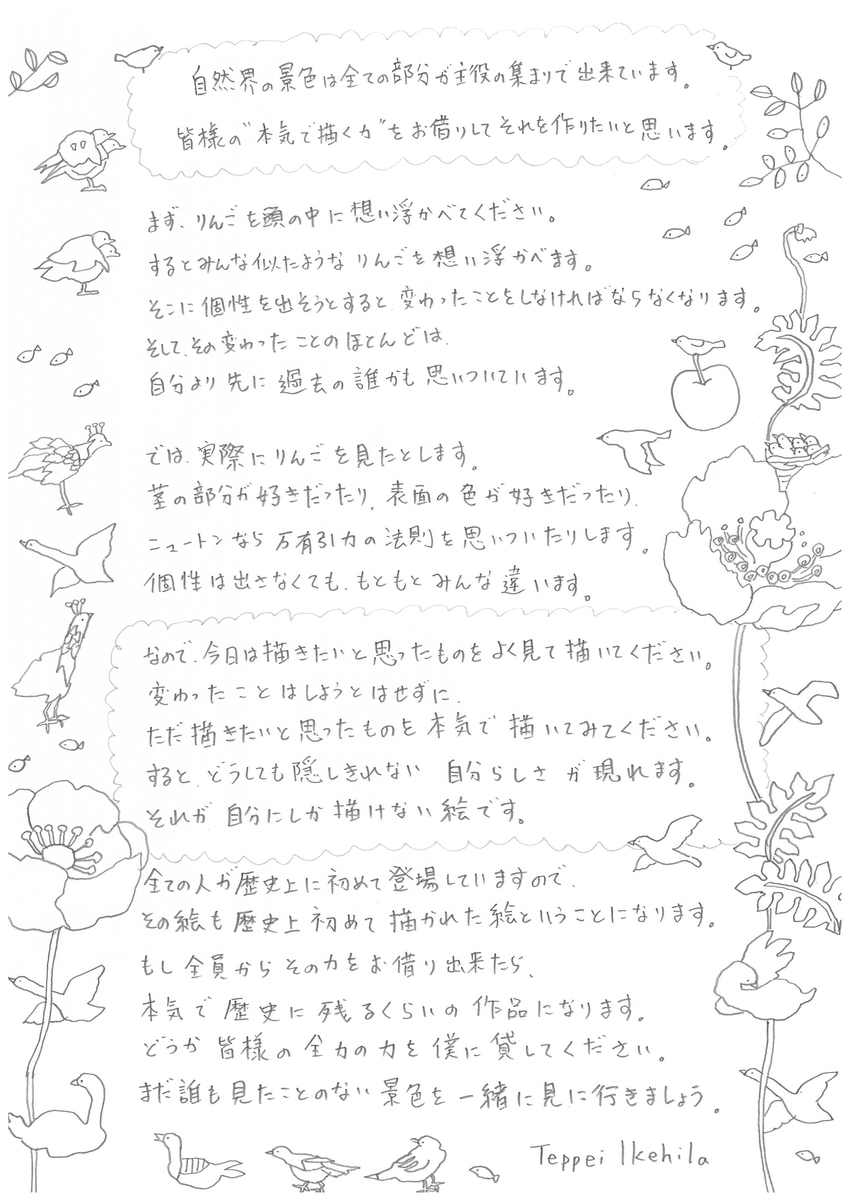 自然界の景色は全ての部分が主役の集まりで出来ています。
皆様の"本気で描く力"をお借りしてそれを作りたいと思います。
まず、りんごを頭の中に想い浮かべてください。
するとみんな似たようなりんごを想い浮かべます。
そこに個性を出そうとすると、変わったことをしなければならなくなります。
そして、その変わったことのほとんどは、
自分より先に過去の誰かも思いついています。
では、実際にりんごを見たとします。
茎の部分が好きだったり、表面の色が好きだったり、
ニュートンなら万有引力の法則を思いついたりします。
個性は出さなくても、もともとみんな違います。
なので、今日は描きたいと思ったものをよく見て描いてください。
変わったことはしようとはせずに、
ただ描きたいと思ったものを本気で描いてみてください。
すると、どうしても隠しきれない 自分らしさが現れます。
それが自分にしか描けない絵です。
全ての人が歴史上に初めて登場していますので、
その絵も歴史上初めて描かれた絵ということになります。
もし全員からその力をお借り出来たら、
本気で歴史に残るくらいの作品になります。
どうか皆様の全力の力を僕に貸してください。
まだ誰も見たことのない景色を一緒に見に行きましょう。
Teppei Ikehila